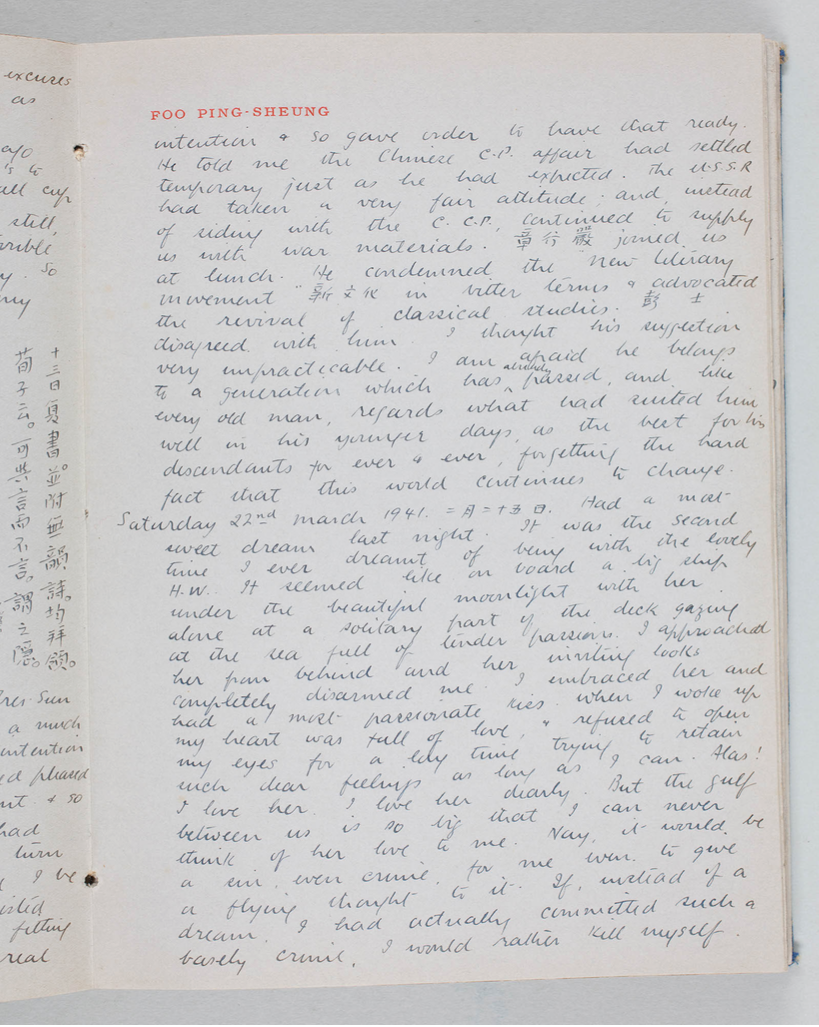 excuses
as
ago
's to
all cup
still,
orrible
y. So
any
十三日夏書並附無韻詩均拜領。
荀子云。可與言而不言。謂之隱。
Pres. Sun
a much
intention
ed pleased
nt. & so
had
turn
I be
isited
fitting
real
FOO PING-SHEUNG
intention & so gave order to have that ready.
He told me the Chinese C.P. affair had settled
temporary just as he had expected. The U.S.S.R
had taken a very fair attitude; and, instead
of siding with the C.C.P., continued to supply
us with war materials. 章行嚴 joined us
at lunch. He condemned the new literary
movement "新文化 in bitter terms & advocated
the revival of classical studies. 彭 士
disagreed with him. I thought his suggestion
very impracticable. I am afraid he belongs
to a generation which has already passed, and, like
every old man, regards what had suited him
well in his younger days, as the best for his
descendants for ever & ever, forgetting the hard
fact that this world continues to change.
Saturday 22nd March 1941. 二月二十五日. Had a most
sweet dream last night. It was the second
time I ever dreamt of being with the lovely
H.W. It seemed like on board a big ship
under the beautiful moonlight with her
alone at a solitary part of the deck gazing
at the sea full of tender passions. I approached
her from behind and her inviting looks
completely disarmed me. I embraced her and
had a most passionate kiss. When I woke up
my heart was full of love, & refused to open
my eyes for a long time trying to retain
such dear feelings as long as I can. Alas!
I love her. I love her dearly. But the gulf
between us is so big that I can never
think of her love to me. Nay, it would be
a sin, even crime, for me even to give
a flying thought to it. If, instead of a
dream, I had actually committed such a
basely crime, I would rather kill myself.